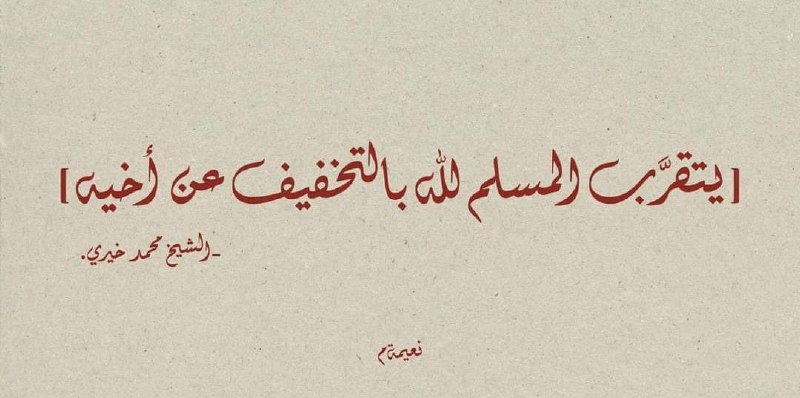 [يتقرَّب المسلم لله بالتخفيف عن أخيه]
-الشيخ محمد خيري.
نعيمة م